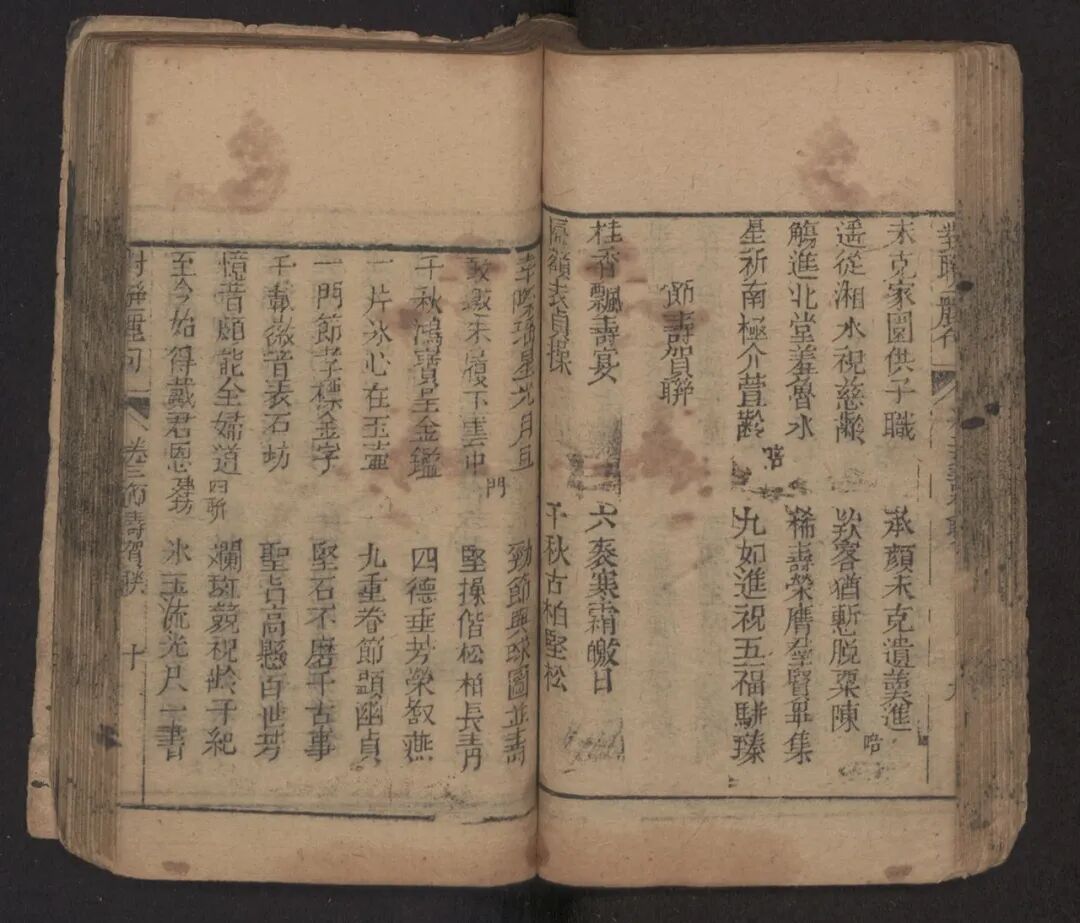 對聯麗句
未克家園供子職 承顏未克遺羮進
遥從湘水祝慈齡 欵客猶慙脫粟陳
觴進北堂羞魯水 稀壽榮膺羣賢畢集
星祈南極介萱齡 九如進祝五福駢臻
節壽賀聯
桂香飄壽宴 六袠寒霜皦日
表貞操 千秋古柏堅松
光月 勁節與球圖並壽
堅操偕松柏長青
千秋鴻寶呈金鑑 四德垂芳榮叙燕
一片冰心在玉壺 九重眷節顕幽貞
一門節孝標金字 堅石不磨千古事
千載徽音表石坊 聖旨高懸百世芳
憶昔願能全婦道 四聯 斕斑競祝齡千紀
至今始得戴君恩 建坊 氷玉流光尺一書
對聯麗句 卷三節壽賀聯 十